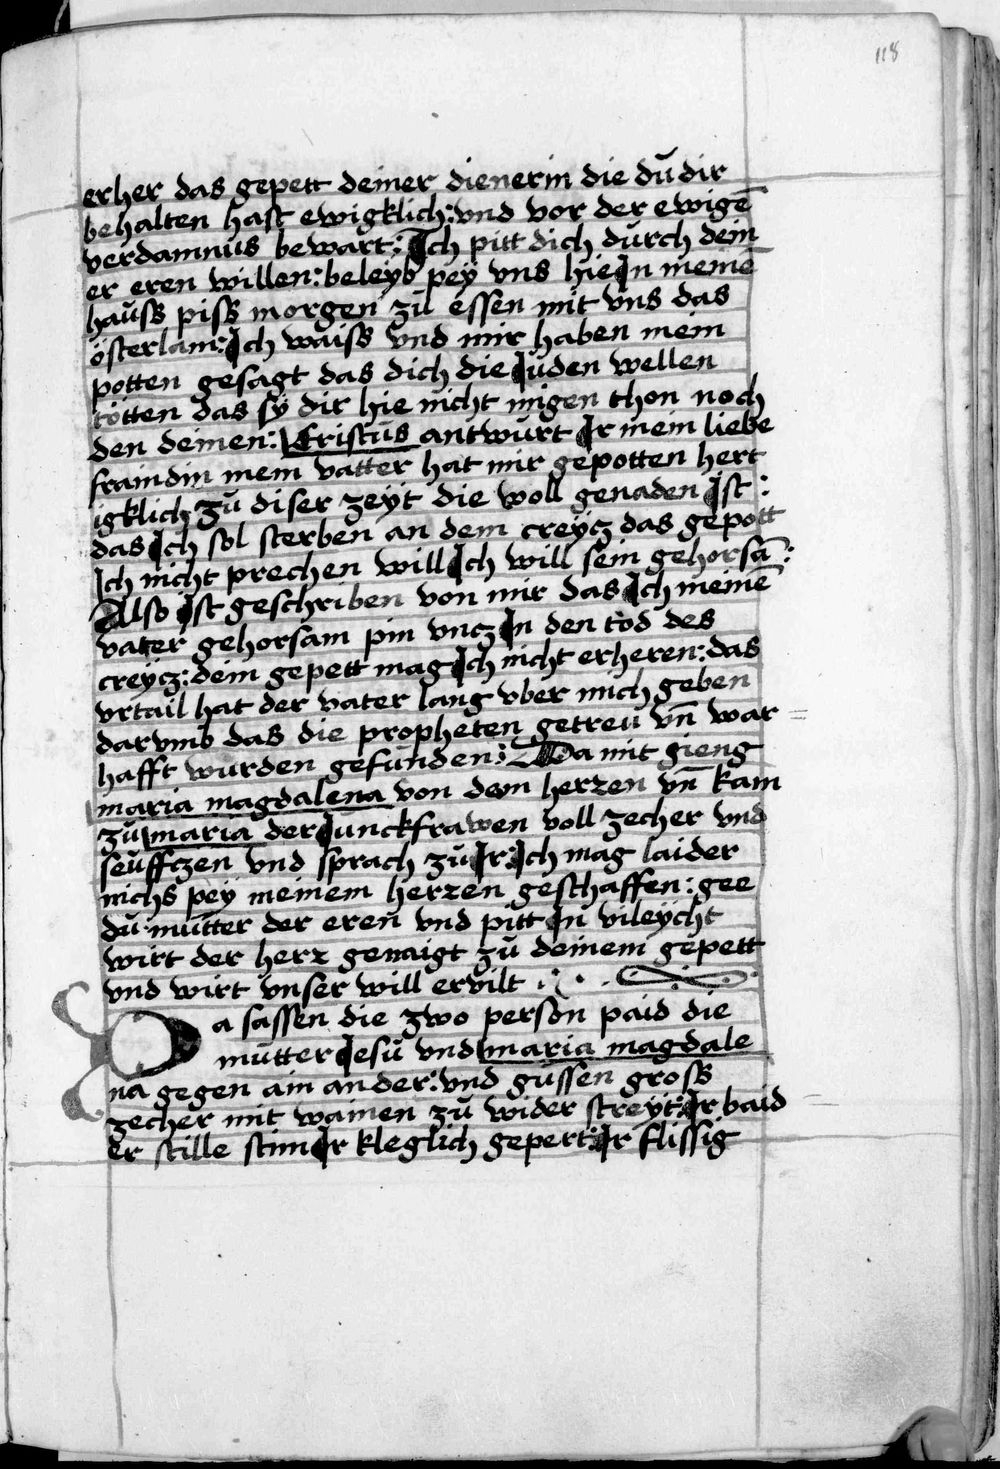 118
erher das gepett deiner dienerin die du dir
behalten hast ewigklich: vnd vor der ewigē
verdamnüs bewart: Ich pitt dich durch dein
er eren willen: beleyb pey vns hie In meinē
hauss piss morgen zu essen mit vns das
österlam: Ich waiss vnd mir haben mein
potten gesagt das dich die Juden wellen
tötten das sy dir hie nicht migen thon noch
den deinen: Cristus antwurt Ir mein liebe
fraindin mein vatter hat mir gepotten hert
igklich zu diser zeyt die woll genaden Ist:
das Ich sol sterben an dem creycz das gepott
Ich nicht prechen will Ich will sein gehorsā:
Also Ist geschriben von mir das Ich meinē
vater gehorsam pin vncz In den tod des
creycz: dein gepett mag Ich nicht erheren: das
vrtail hat der vater lang vber mich geben
darvmb das die propheten getreu vn̄ war=
hafft wurden gefunden: Da mit gieng
maria magdalena von dem herzen vn̄ kam
zu maria der Junckfrawen voll zecher vnd
seuffczen vnd sprach zu Ir: Ich mag laider
nichs pey meinem herzen geschaffen: gee
du mutter der eren vnd pitt In vileycht
wirt der herz genaigt zu deinem gepett
vnd wirt vnser will ervilt
Da sassen die zwo person paid die
mutter Jesu vnd maria magdale
na gegen ain ander: vnd gussen gross
zecher mit wainen zu wider streyt: Ir baid=
er stille stim Ir kleglich gepert: Ir flissig